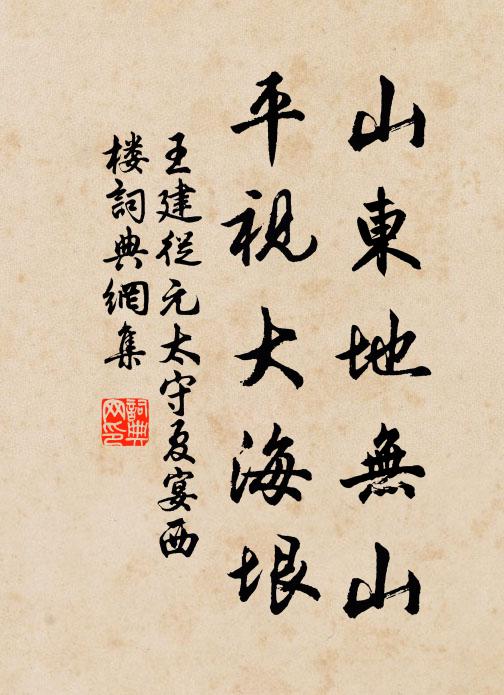 山東地無山
平視大海垠
王建從元太守夏宴西
楼詞典網集
詞典
网印